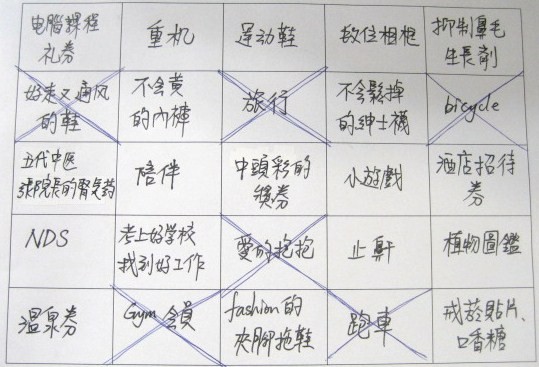 电腦課程
礼券
重机
運动鞋
数位相框
抑制鼻毛
生長剤
好走又通风
的鞋
不会黄
的內褲
旅行
不会鬆掉
的紳士襪
bicycle
五代中医
張院長的腎臭药
陪伴
中頭彩的
獎券
小遊戲
酒店招待
券
NDS
考上好学校
找到好工作
愛的抱抱
止鼾
植物圖鑑
温泉券
Gym 會員
fashion的
夾腳拖鞋
跑車
戒菸貼片、
口香糖